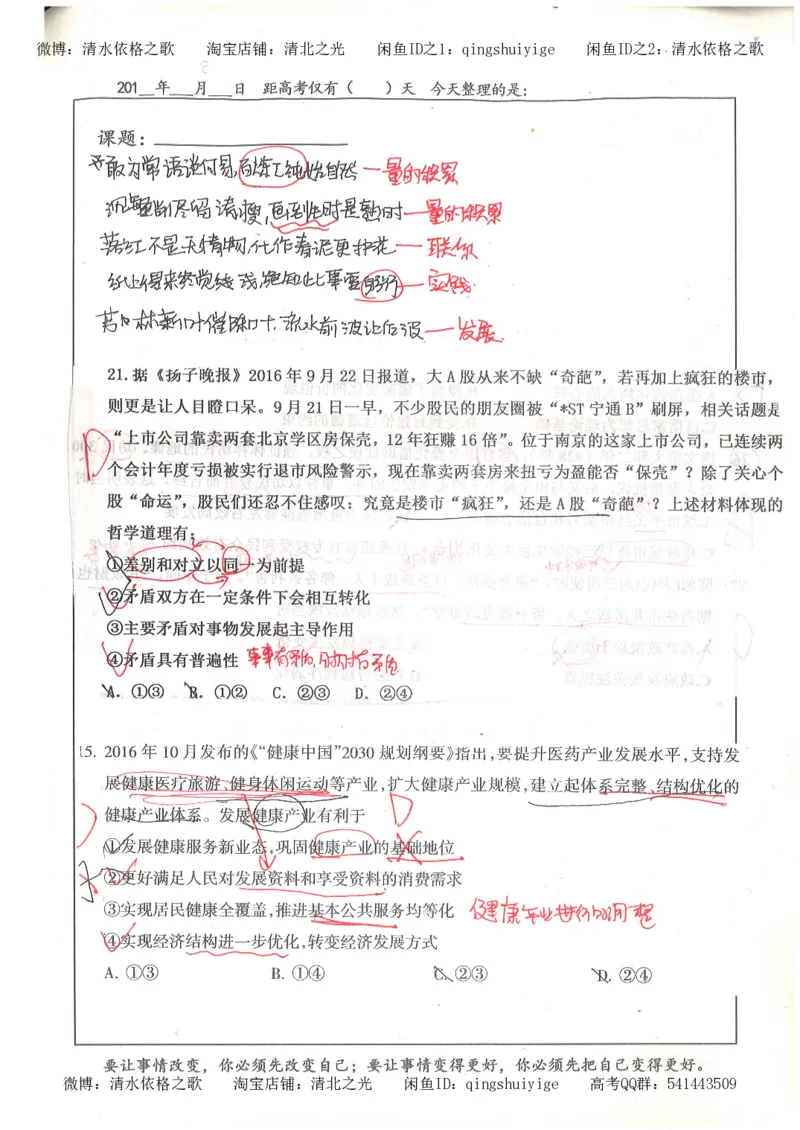 微博：清水依格之歌　淘宝店铺：清北之光　闲鱼ID之1：qingshuiyige　闲鱼ID之2：清水依格之歌
201__年___月___日　距高考仅有（　　）天　今天整理的是：
课题：
敢为常语谈何易，百炼工纯始自然 — 量的积累
删尽 时是熟时 — 量的积累
落红不是无情物，化作春泥更护花 — 联系
纸上得来终觉浅，绝知此事要躬行 — 实践
芳林新叶催陈叶，流水前波让后波 — 发展
21. 据《扬子晚报》2016 年 9 月 22 日报道，大 A 股从来不缺“奇葩”，若再加上疯狂的楼市，
则更是让人目瞪口呆。9 月 21 日一早，不少股民的朋友圈被“*ST 宁通 B”刷屏，相关话题是
“上市公司靠卖两套北京学区房保壳，12 年狂赚 16 倍”。位于南京的这家上市公司，已连续两
D
个会计年度亏损被实行退市风险警示，现在靠卖两套房来扭亏为盈能否“保壳”？除了关心个
股“命运”，股民们还忍不住感叹：究竟是楼市“疯狂”，还是 A 股“奇葩”？上述材料体现的
哲学道理有：
①差别和对立以同一为前提
②矛盾双方在一定条件下会相互转化
③主要矛盾对事物发展起主导作用
④矛盾具有普遍性 事事有矛盾，时时有矛盾
A. ①③　B. ①②　C. ②③　D. ②④
15. 2016 年 10 月发布的《“健康中国”2030 规划纲要》指出，要提升医药产业发展水平，支持发
展健康医疗旅游、健身休闲运动等产业，扩大健康产业规模，建立起体系完整、结构优化的
健康产业体系。发展健康产业有利于 D
①发展健康服务新业态，巩固健康产业的基础地位
②更好满足人民对发展资料和享受资料的消费需求
③实现居民健康全覆盖，推进基本公共服务均等化
④实现经济结构进一步优化，转变经济发展方式
A. ①③　B. ①④　C. ②③　D. ②④
要让事情改变，你必须先改变自己；要让事情变得更好，你必须先把自己变得更好。
微博：清水依格之歌　淘宝店铺：清北之光　闲鱼ID：qingshuiyige　高考QQ群：541443509